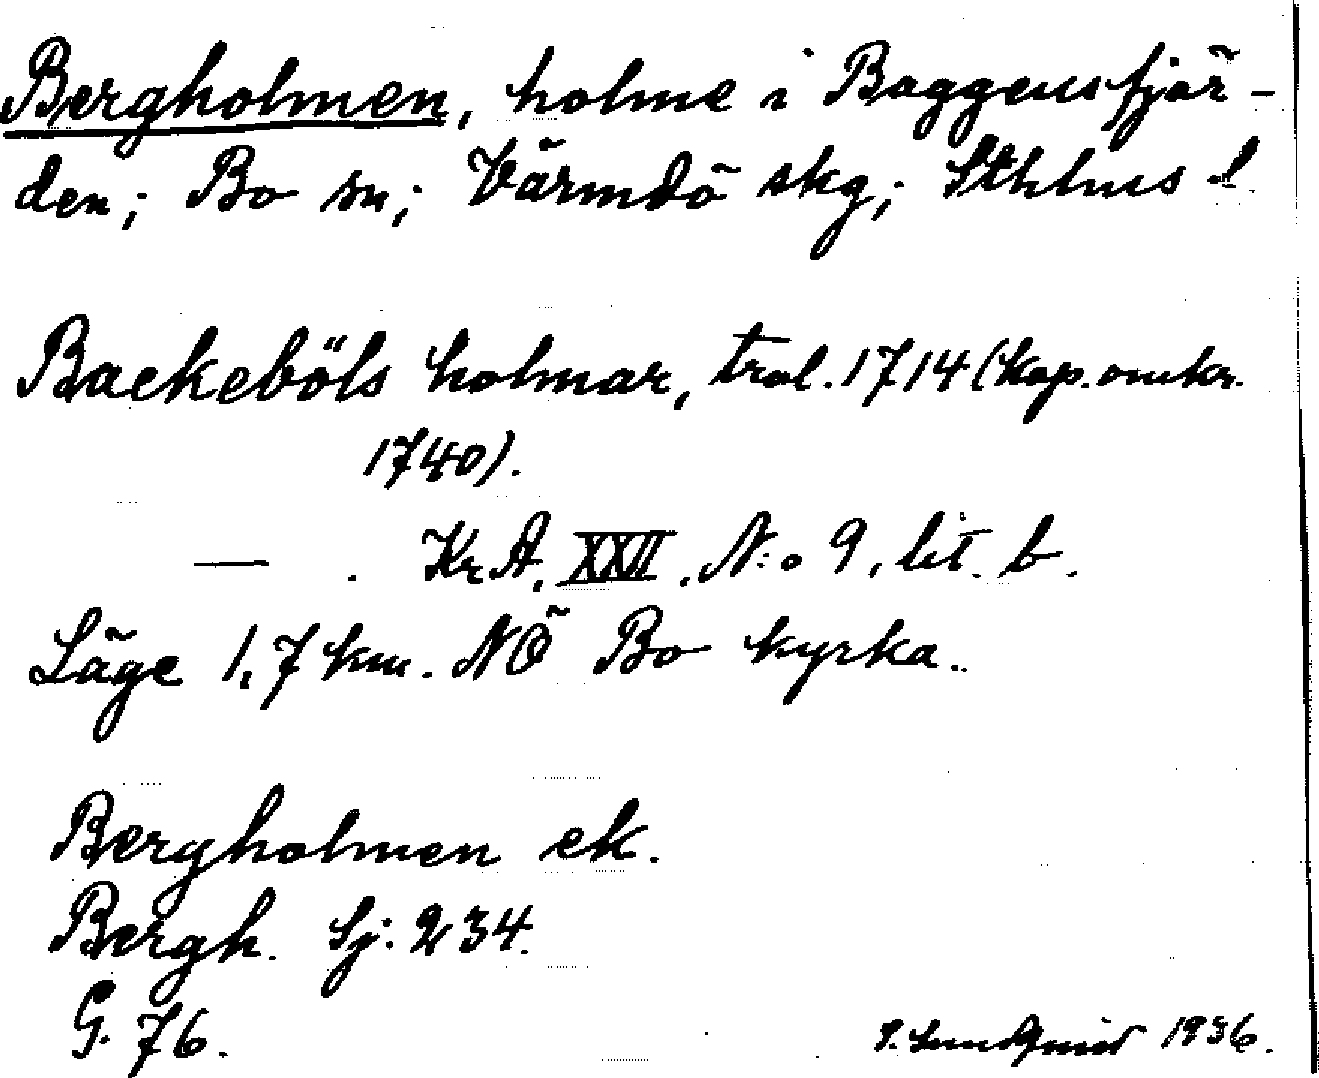 Bergholmen, holme i Baggensfjär-
den; Bo sn; Värmdö skg; Sthlms l.
Backeböls holmar, tral. 1714 (kop. omkr.
1740).
— . Kr. A. XXII. N:o 9. lit. b.
Läge 1,7 km. NÖ Bo kyrka.
Bergholmen ek.
Bergh. Sj: 234.
G. 76.
Lundquist 1936.